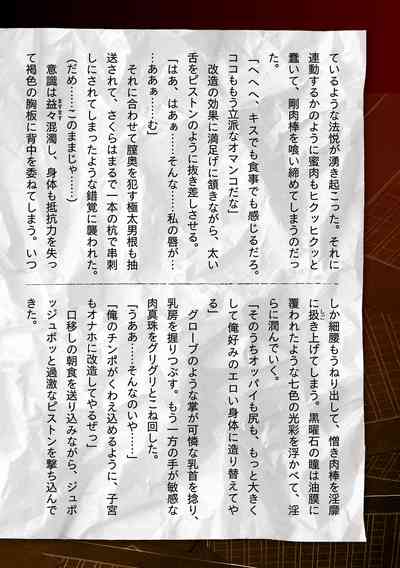 ているような法悦が湧き起こった。それに
連動するかのように蜜肉もヒクッヒクッと
蠢いて、剛肉棒を喰い締めてしまうのだっ
た。
「へへへ、キスでも食事でも感じるだろ。
ココももう立派なオマンコだな」
　改造の効果に満足げに頷きながら、太い
舌をピストンのように抜き差しさせる。
「はあ、はあぁ……そんな……私の唇が…
…ああぁ……む」
　それに合わせて膣奥を犯す極太男根も抽
送されて、さくらはまるで一本の杭で串刺
しにされてしまったような錯覚に襲われた。
（だめ……このままじゃ……）
　意識は益々混濁し、身体も抵抗力を失っ
て褐色の胸板に背中を委ねてしまう。いつ
しか細腰もうねり出して、憎き肉棒を淫靡
に扱き上げてしまう。黒曜石の瞳は油膜に
覆われたような七色の光彩を浮かべて、淫
らに潤んでいく。
「そのうちオッパイも尻も、もっと大きく
して俺好みのエロい身体に造り替えてや
る」
　グローブのような掌が可憐な乳首を捻り、
乳房を握りつぶす。もう一方の手が敏感な
肉真珠をグリグリとこね回した。
「うああ……そんなのいや……」
「俺のチンポがくわえ込めるように、子宮
もオナホに改造してやるぜっ」
　口移しの朝食を送り込みながら、ジュボ
ッジュボッと過激なピストンを撃ち込んで
きた。